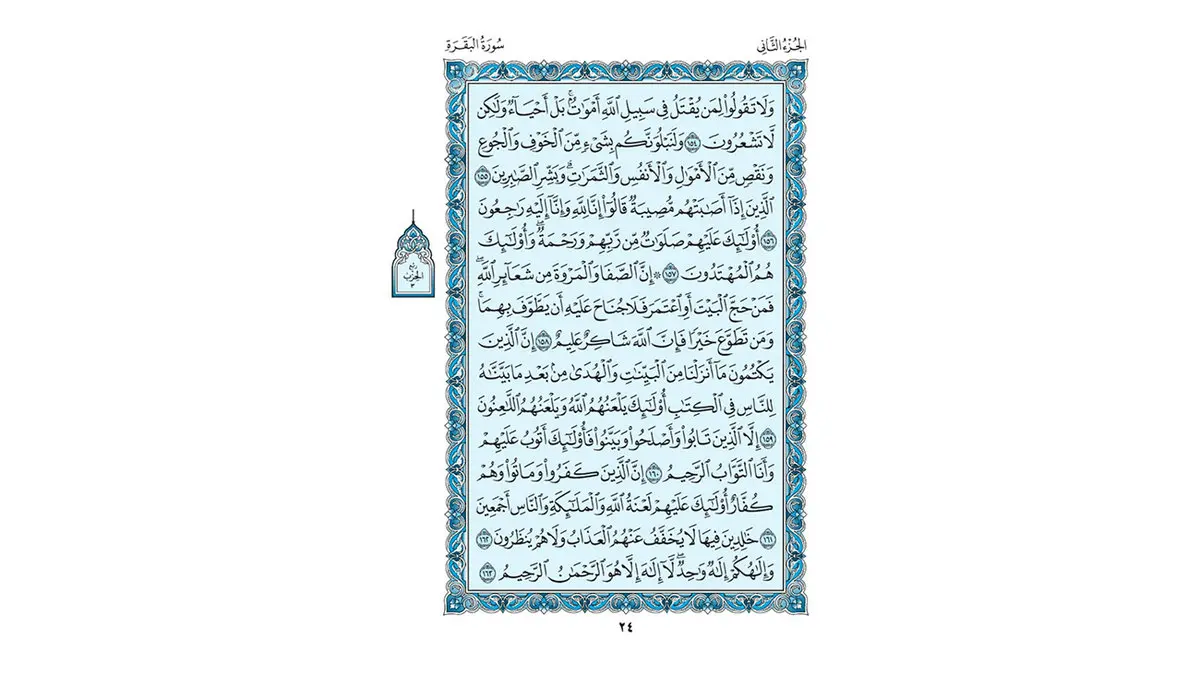 الجُزْءُ الثَّانِي
سُورَةُ البَقَرَةِ
وَلَا تَقُولُواْ لِمَن يُقْتَلُ فِي سَبِيلِ ٱللَّهِ أَمْوَٰتُۢۚ بَلْ أَحْيَآءٞ وَلَٰكِن
لَّا تَشْعُرُونَ ١٥٤ وَلَنَبْلُوَنَّكُم بِشَيْءٖ مِّنَ ٱلْخَوْفِ وَٱلْجُوعِ
وَنَقْصٖ مِّنَ ٱلْأَمْوَٰلِ وَٱلْأَنفُسِ وَٱلثَّمَرَٰتِۗ وَبَشِّرِ ٱلصَّٰبِرِينَ ١٥٥
ٱلَّذِينَ إِذَآ أَصَٰبَتْهُم مُّصِيبَةٞ قَالُوٓاْ إِنَّا لِلَّهِ وَإِنَّآ إِلَيْهِ رَٰجِعُونَ
١٥٦ أُوْلَٰٓئِكَ عَلَيْهِمْ صَلَوَٰتٞ مِّن رَّبِّهِمْ وَرَحْمَةٞۖ وَأُوْلَٰٓئِكَ
هُمُ ٱلْمُهْتَدُونَ ١٥٧ ۞ إِنَّ ٱلصَّفَا وَٱلْمَرْوَةَ مِن شَعَآئِرِ ٱللَّهِۖ
فَمَنْ حَجَّ ٱلْبَيْتَ أَوِ ٱعْتَمَرَ فَلَا جُنَاحَ عَلَيْهِ أَن يَطَّوَّفَ بِهِمَاۚ
وَمَن تَطَوَّعَ خَيْرٗا فَإِنَّ ٱللَّهَ شَاكِرٌ عَلِيمٌ ١٥٨ إِنَّ ٱلَّذِينَ
يَكْتُمُونَ مَآ أَنزَلْنَا مِنَ ٱلْبَيِّنَٰتِ وَٱلْهُدَىٰ مِنۢ بَعْدِ مَا بَيَّنَّٰهُ
لِلنَّاسِ فِي ٱلْكِتَٰبِ أُوْلَٰٓئِكَ يَلْعَنُهُمُ ٱللَّهُ وَيَلْعَنُهُمُ ٱللَّٰعِنُونَ
١٥٩ إِلَّا ٱلَّذِينَ تَابُواْ وَأَصْلَحُواْ وَبَيَّنُواْ فَأُوْلَٰٓئِكَ أَتُوبُ عَلَيْهِمْ
وَأَنَا ٱلتَّوَّابُ ٱلرَّحِيمُ ١٦٠ إِنَّ ٱلَّذِينَ كَفَرُواْ وَمَاتُواْ وَهُمْ
كُفَّارٌ أُوْلَٰٓئِكَ عَلَيْهِمْ لَعْنَةُ ٱللَّهِ وَٱلْمَلَٰٓئِكَةِ وَٱلنَّاسِ أَجْمَعِينَ
١٦١ خَٰلِدِينَ فِيهَا لَا يُخَفَّفُ عَنْهُمُ ٱلْعَذَابُ وَلَا هُمْ يُنظَرُونَ ١٦٢
وَإِلَٰهُكُمْ إِلَٰهٞ وَٰحِدٞۖ لَّآ إِلَٰهَ إِلَّا هُوَ ٱلرَّحْمَٰنُ ٱلرَّحِيمُ ١٦٣
رُبْع
الحِزْب
٣
٢٤